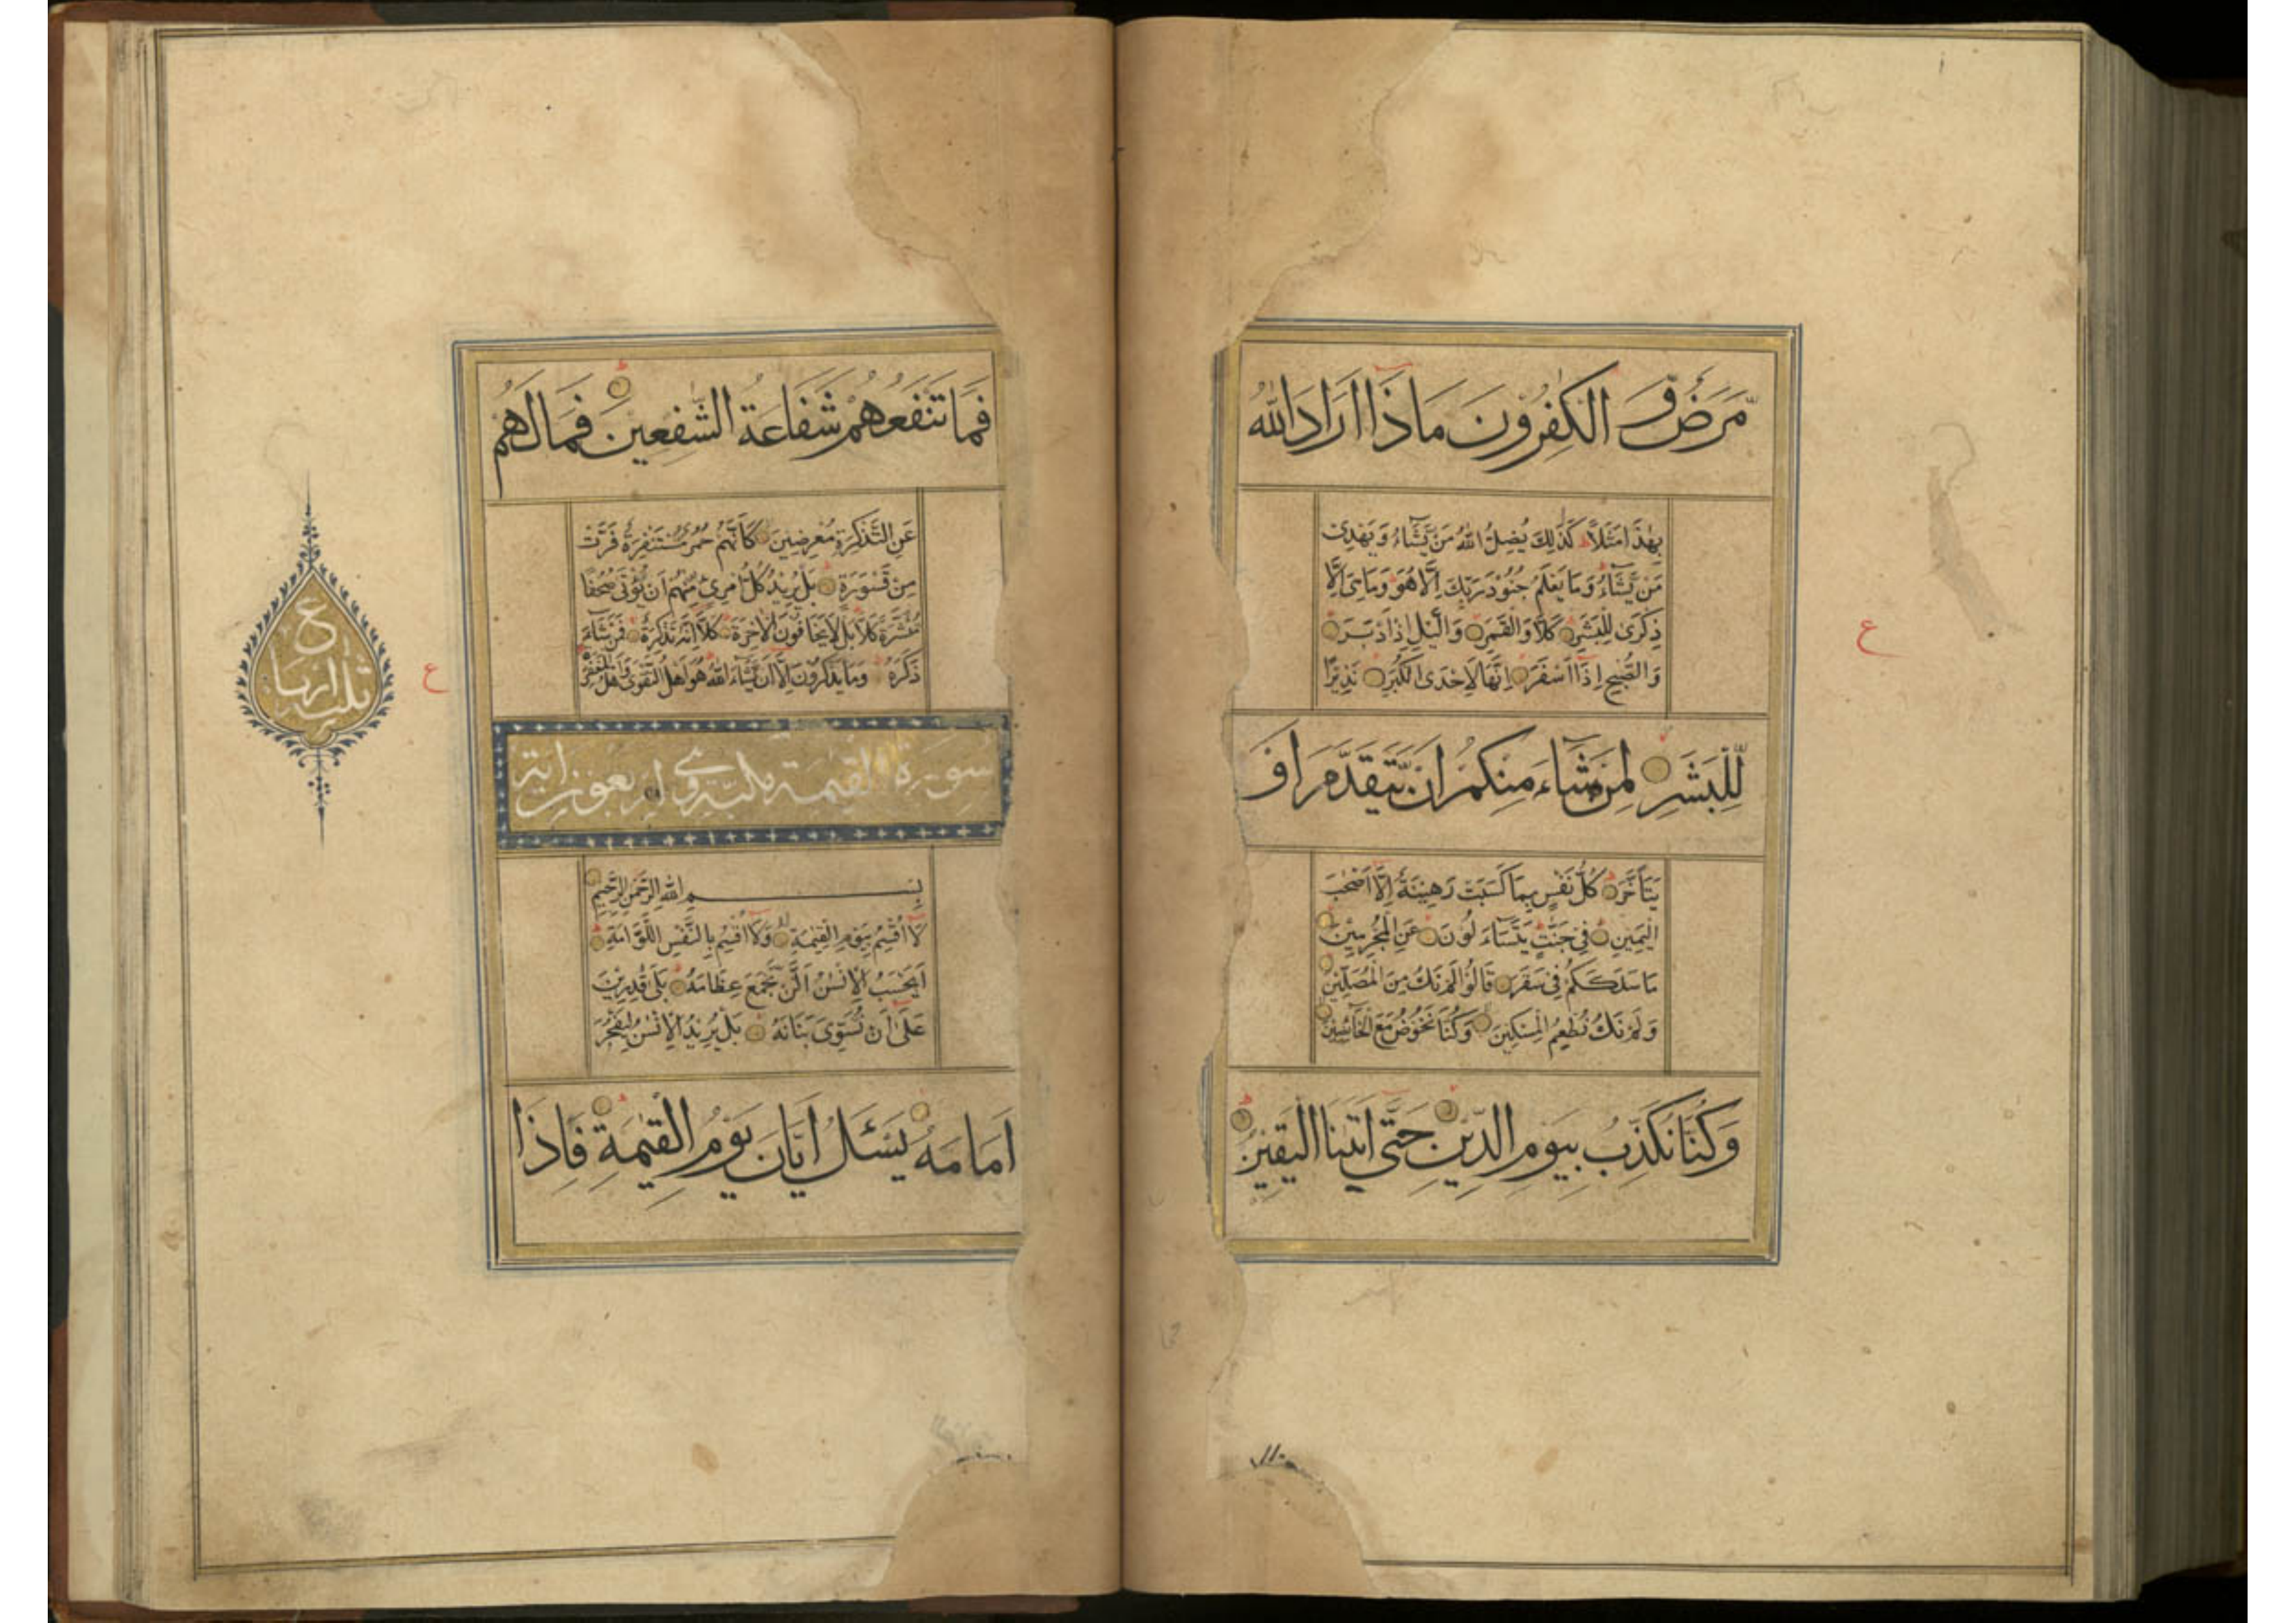 مَرَضٌ وَّ الْكٰفِرُوْنَ مَاذَا اَرَادَ اللّٰهُ
بِهٰذَا مَثَلًا كَذٰلِكَ يُضِلُّ اللّٰهُ مَنْ يَّشَآءُ وَيَهْدِىْ
مَنْ يَّشَآءُ وَمَا يَعْلَمُ جُنُوْدَ رَبِّكَ اِلَّا هُوَ وَمَا هِىَ اِلَّا
ذِكْرٰى لِلْبَشَرِ كَلَّا وَالْقَمَرِ وَالَّيْلِ اِذْ اَدْبَرَ
وَالصُّبْحِ اِذَا اَسْفَرَ اِنَّهَا لَاِحْدَى الْكُبَرِ نَذِيْرًا
لِّلْبَشَرِ لِمَنْ شَآءَ مِنْكُمْ اَنْ يَّتَقَدَّمَ اَوْ
يَتَاَخَّرَ كُلُّ نَفْسٍ بِمَا كَسَبَتْ رَهِيْنَةٌ اِلَّا اَصْحٰبَ
الْيَمِيْنِ فِىْ جَنّٰتٍ يَتَسَآءَلُوْنَ عَنِ الْمُجْرِمِيْنَ
مَا سَلَكَكُمْ فِىْ سَقَرَ قَالُوْا لَمْ نَكُ مِنَ الْمُصَلِّيْنَ
وَلَمْ نَكُ نُطْعِمُ الْمِسْكِيْنَ وَكُنَّا نَخُوْضُ مَعَ الْخَآئِضِيْنَ
وَكُنَّا نُكَذِّبُ بِيَوْمِ الدِّيْنِ حَتّٰى اَتٰىنَا الْيَقِيْنُ
ع
فَمَا تَنْفَعُهُمْ شَفَاعَةُ الشّٰفِعِيْنَ فَمَا لَهُمْ
عَنِ التَّذْكِرَةِ مُعْرِضِيْنَ كَاَنَّهُمْ حُمُرٌ مُّسْتَنْفِرَةٌ فَرَّتْ
مِنْ قَسْوَرَةٍ بَلْ يُرِيْدُ كُلُّ امْرِئٍ مِّنْهُمْ اَنْ يُّؤْتٰى صُحُفًا
مُّنَشَّرَةً كَلَّا بَلْ لَا يَخَافُوْنَ الْاٰخِرَةَ كَلَّا اِنَّهٗ تَذْكِرَةٌ فَمَنْ شَآءَ
ذَكَرَهٗ وَمَا يَذْكُرُوْنَ اِلَّا اَنْ يَّشَآءَ اللّٰهُ هُوَ اَهْلُ التَّقْوٰى وَاَهْلُ الْمَغْفِرَةِ
سورة القيمة مكية وهي اربعون اية
بِسْمِ اللّٰهِ الرَّحْمٰنِ الرَّحِيْمِ
لَا اُقْسِمُ بِيَوْمِ الْقِيٰمَةِ وَلَا اُقْسِمُ بِالنَّفْسِ اللَّوَّامَةِ
اَيَحْسَبُ الْاِنْسٰنُ اَلَّنْ نَّجْمَعَ عِظَامَهٗ بَلٰى قٰدِرِيْنَ
عَلٰى اَنْ نُّسَوِّىَ بَنَانَهٗ بَلْ يُرِيْدُ الْاِنْسٰنُ لِيَفْجُرَ
اَمَامَهٗ يَسْئَلُ اَيَّانَ يَوْمُ الْقِيٰمَةِ فَاِذَا
ع
ع